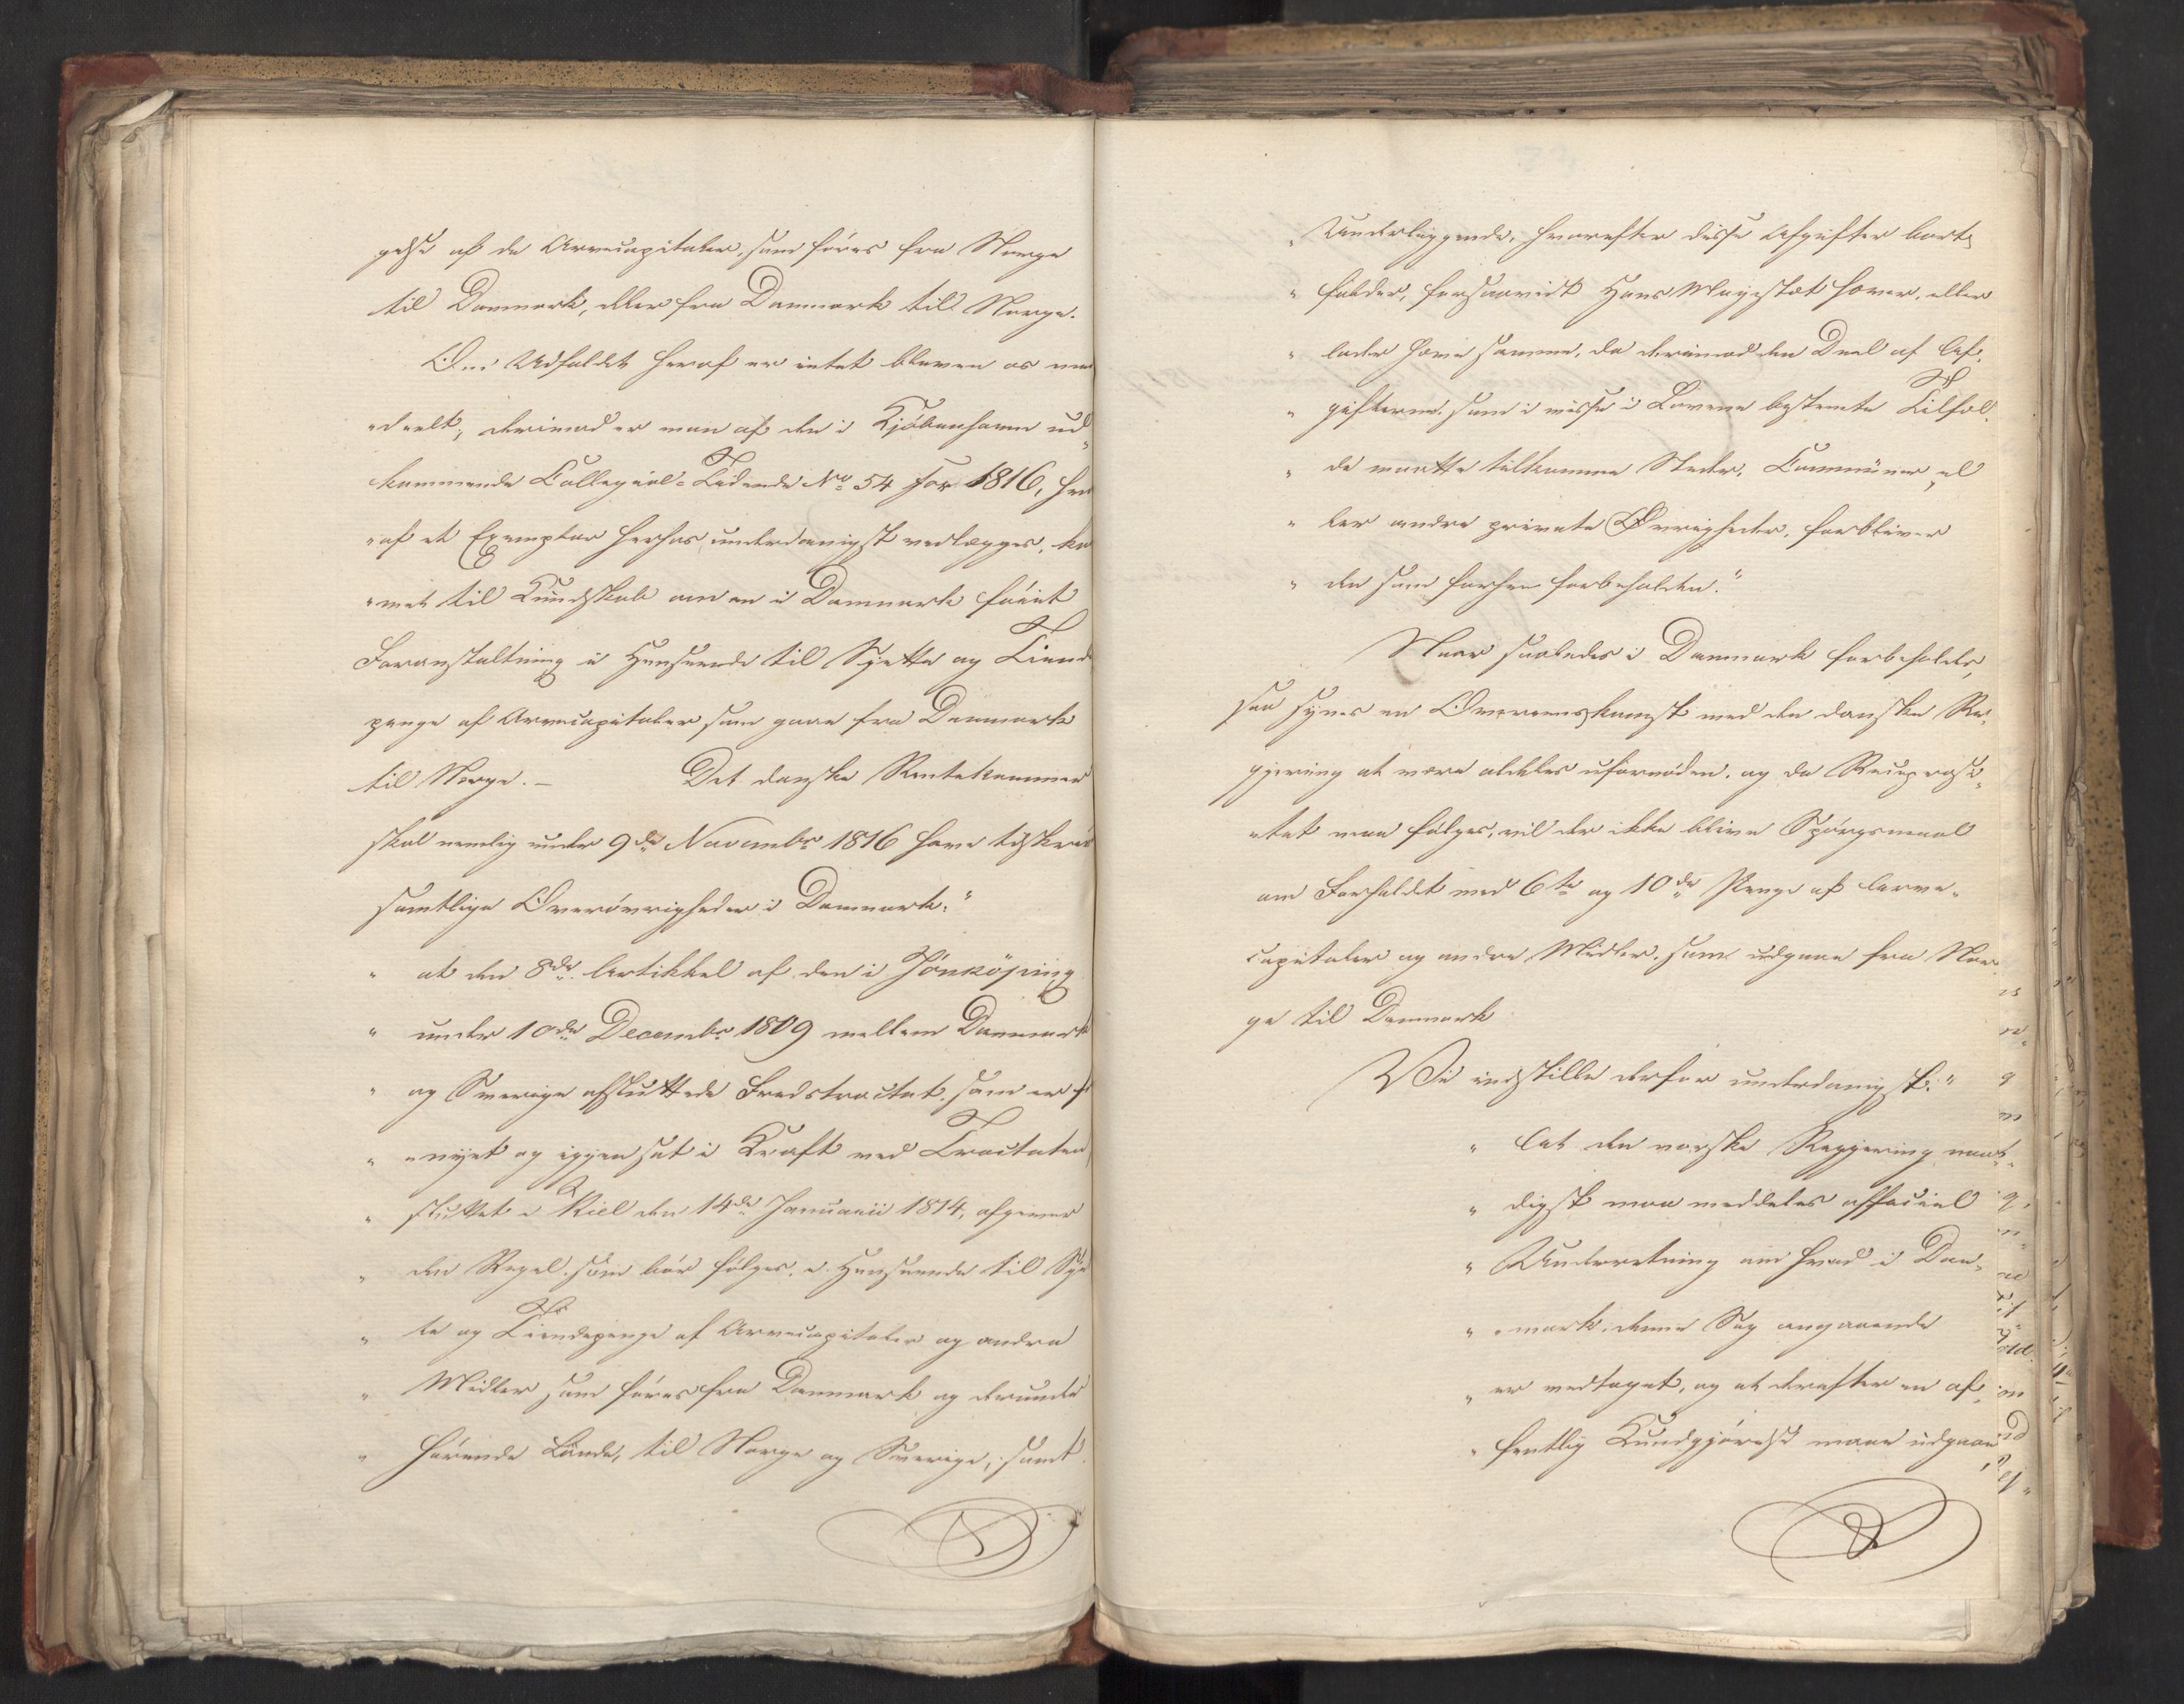 gelse af de Arvecapitaler, som føres fra Norge
til Danmark, eller fra Danmark til Norge.
Om Udfaldet heraf er intet bleven os med
„deelt; derimod er man af den i Kjøbenhavn ud„
kommende Collegial-Tidende No 54 for 1816, hvor
„af et Exemplar herhos underdanigst vedlægges, kom
„met til Kundskab om en i Danmark føiet
Foranstaltning i Henseende til Sjette og Tiende
penge af Arvecapitaler som gaae fra Danmark
til Norge. — Det danske Rentekammer
skal nemlig under 9de Novembr 1816 have tilskrevet
samtlige Overøvrigheder i Danmark:"
" at den 8de Artikkel af den i Jönköping
" under 10de Decembr 1809 mellem Danmark
" og Sverige afsluttede Fredstractat, som er for
" „nyet og igjen sat i Kraft ved Tractaten
" sluttet i Kiel den 14de Januarii 1814, afgiver
" den Regel, som bør følges, i Henseende til Sjet
" te og Tiendepenge af Arvecapitaler og andre
" Midler som føres fra Danmark og derunder
" hørende Lande, til Norge og Sverige, samt
" Underliggende, hvorefter disse Afgifter bort„
" falder, forsaavidt Hans Majestæt hæver, eller
" lader hæve samme, da derimod den Deel af Af„
" gifterne, som i visse i Lovene bestemte Tilfæl„
" de maatte tilkomme Stæder, Communer el„
" ler andre private Øvrigheder, forbliver
" den som forhen forbeholden."
Naar saaledes i Danmark forholdes,
saa synes en Overeenskomst med den danske Re„
gjering at være aldeles ufornøden, og da Reciprosi„
„tet maa følges, vil der ikke blive Spørgsmaal
om Forholdet med 6te og 10de Penge af Arve„
capitaler og andre Midler, som udgaae fra Nor„
ge til Danmark
Vi indstille derfor underdanigst:"
" At den norske Regjering naa„
" digst maa meddeles officiel
" Underretning om hvad i Dan„
" „mark, denne Sag angaaende
" er vedtaget, og at derefter en of„
" fentlig Kundgjørelse maae udgaae,